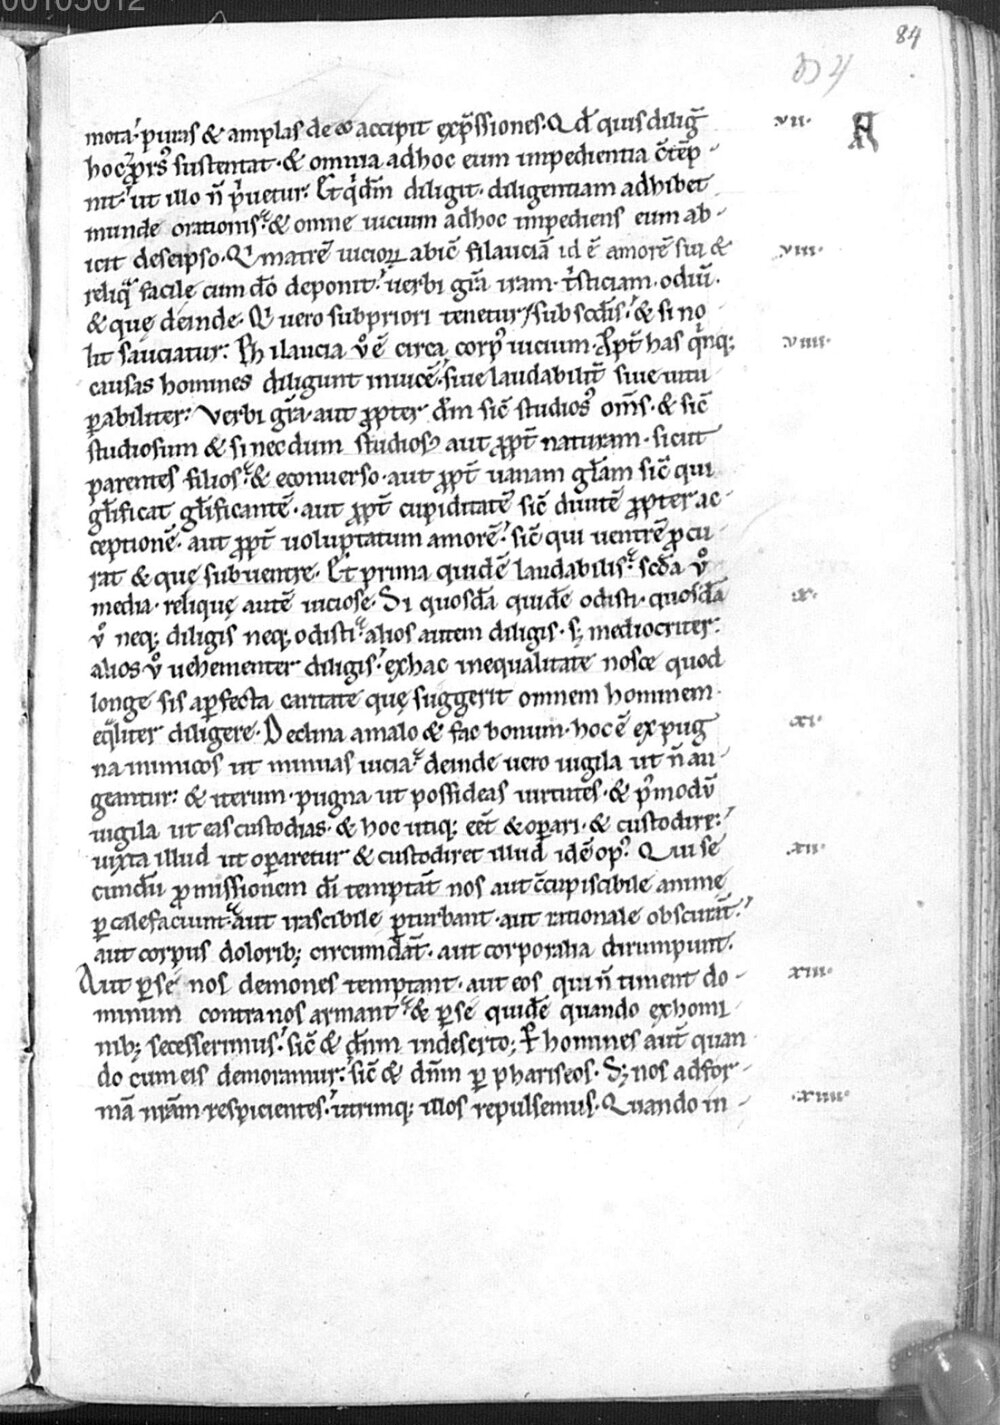 00103012
84
mota· puras & amplas de eo accipit exp̄ssiones· Qd̄ quis dilig̃ ·vii· A
hoc prorsꝰ sustentat· & omnia adhoc eum impedientia c̄tēp
nit· ut illo n̄ p̄uetur· Et q̄dm̄ diligit· diligentiam adhibet
munde orationis· & omne uicium adhoc impediens eum ab
icit deseipso· Q̄ matrē uicioꝝ abic̄ filauciā id ē amorē sui & ·viii·
reliq̄ facile cum dō deponit· uerbi gr̄a iram· tⁱsticiam· odiū·
& quę deinde· Q uero subpriori tenetur subscd̄is· & si no
lit sauciatur: Philaucia v̊ ē circa corpꝰ uicium· Ꝓpt̄ has qⁱnq; ·viiii·
causas homines diligunt inuicē· siue laudabilit̄ siue uitu
ꝑabiliter: Verbi gr̄a· aut ꝓpter dm̄ sic̄ studiosꝰ om̄s· & sic̄
studiosum & si necdum studiosꝰ aut ꝓpt̄ naturam· sicut
parentes filios· & econuerso· aut ꝓpt̄ uanam gl̄am sic̄ qui
gl̄ificat gl̄ificantē· aut ꝓpt̄ cupiditatē sic̄ diuitē ꝓpter ac
ceptionē· aut ꝓpt̄ uoluptatum amorē· sic̄ qui uentrē ꝓcu
rat & quę subuentre· Et prima quidē laudabilis· scd̄a v̊
media· reliquę autē uiciose· Si quosdā quidē odisti· quosdā ·x·
v̊ neq; diligis neq; odisti· alios autem diligis· s; mediocriter:
alios v̊ uehementer diligis· exhac inequalitate nosce quod
longe sis aꝑfecta caritate quę suggerit omnem hominem
eq̄liter diligere· Declina amalo & fac bonum· hoc ē expug ·xi·
na inimicos ut minuas uicia· deinde uero uigila ut n̄ au
geantur: & iterum· pugna ut possideas uirtutes· & p̄modū
uigila ut eas custodias· & hoc utiq; eēt & oꝑari· & custodire:
iuxta illud ut oꝑaretur & custodiret illud idē opꝰ Qui se ·xii·
cundū ꝓmissionem dī temptāt nos aut c̄cupiscibile anime
ꝑcalefaciunt· aut irascibile ꝑturbant· aut rationale obscurāt·
aut corpus dolorib; circumdāt· aut corporalia dirumpunt·
Aut ꝑse nos demones temptant· aut eos qui n̄ timent do ·xiii·
minum contra nos armant· & ꝑse quidē quando ex homi
nib; secesserimus· sic̄ & dn̄m indeserto; ꝑ homines aut̄ quan
do cum eis demoramur: sic̄ & dn̄m ꝑ phariseos· S; nos adfor
mā nr̄am respicientes· utrimq; illos repulsemus· Quando in ·xiiii·